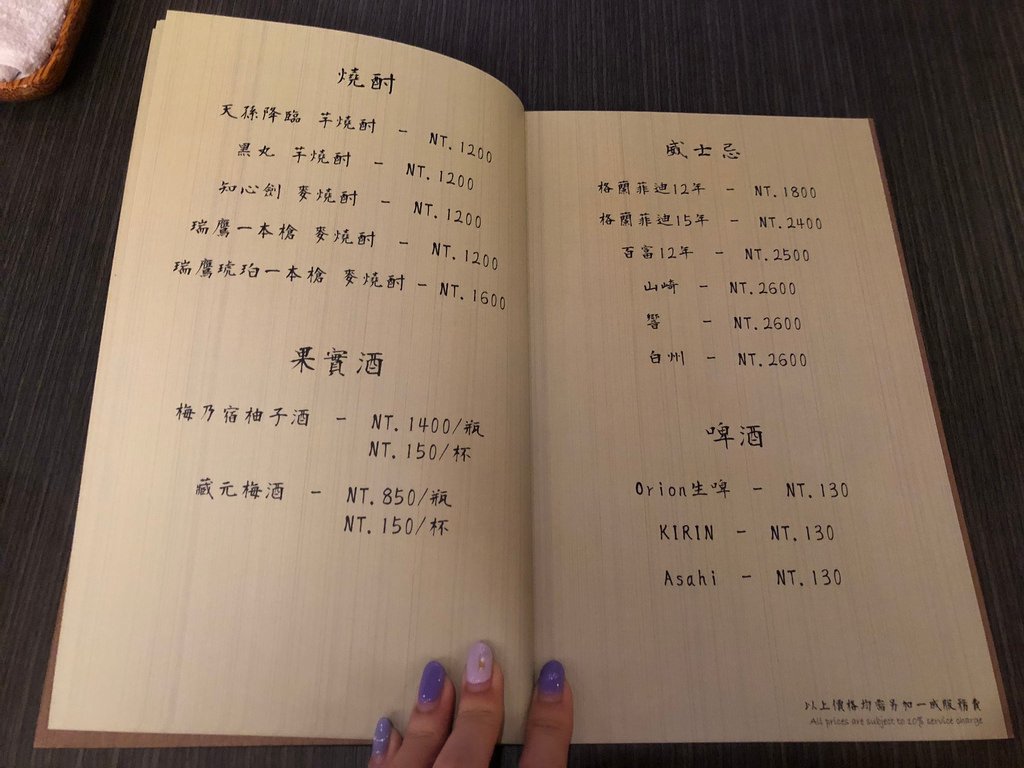 燒酎
天孫降臨 芋燒酎 - NT.1200
黑丸 芋燒酎 - NT.1200
知心劍 麥燒酎 - NT.1200
瑞鷹一本槍 麥燒酎 - NT.1200
瑞鷹琥珀一本槍 麥燒酎 - NT.1600
果實酒
梅乃宿柚子酒 - NT.1400/瓶
NT.150/杯
藏元梅酒 - NT.850/瓶
NT.150/杯
威士忌
格蘭菲迪12年 - NT.1800
格蘭菲迪15年 - NT.2400
百富12年 - NT.2500
山崎 - NT.2600
響 - NT.2600
白州 - NT.2600
啤酒
Orion生啤 - NT.130
KIRIN - NT.130
Asahi - NT.130
以上價格均需另加一成服務費
All prices are subject to 10% service charge